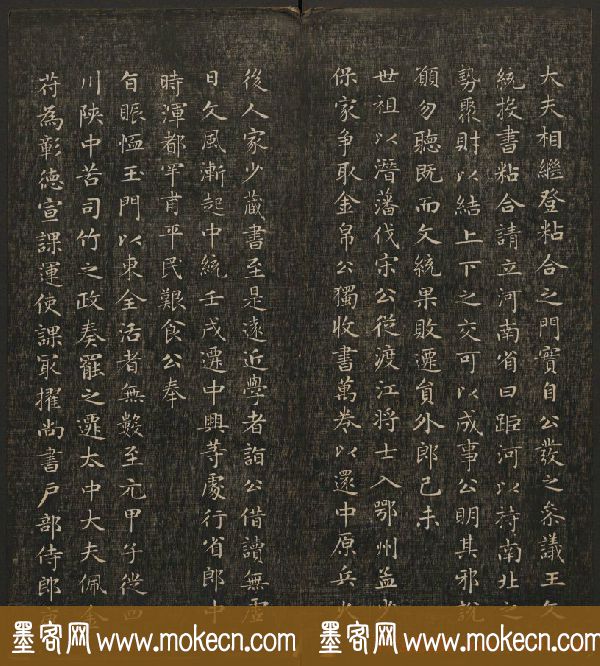 大夫相繼登粘合之門寶自公發之叅議王文
統投書粘合請立河南省曰距河以持南北之
勢聚財以結上下之交可以成事公明其邪說
願勿聽既而文統果敗遷貟外郎己未
世祖以潛藩伐宋公從渡江將士入鄂州益
保家爭取金帛公獨收書萬卷以還中原兵火
後人家少藏書至是遠近學者詣公借讀無虛
日文風漸起中統壬戌遷中興等處行省郎中
時渾都罕甫平民艱食公奉
旨賑恤玉門以東全活者無數至元甲子從四
川陝中苦司竹之政奏罷之遷太中大夫佩金
符為彰德宣課運使課最擢尚書戶部侍郎
墨客网 www.mokecn.com 墨客网 www.mokecn.com